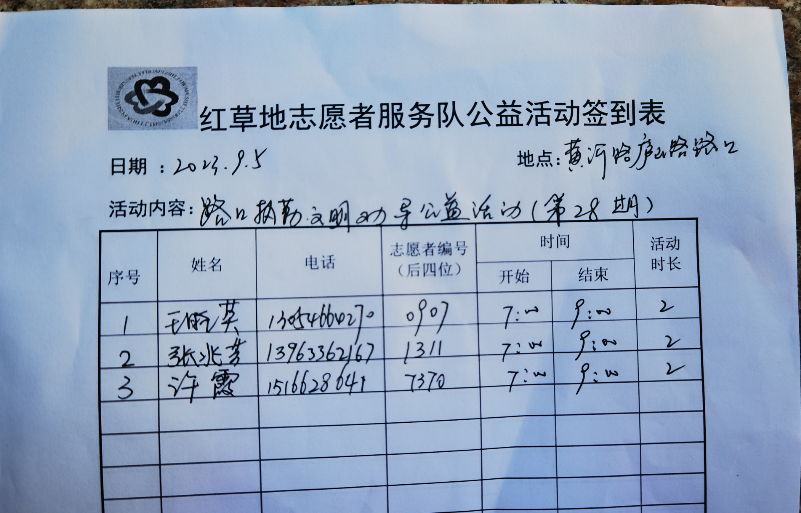 红草地志愿者服务队公益活动签到表
日期：2023.9.5 地点：黄河路庐山路路口
活动内容：路口执勤文明劝导公益活动（第28期）
序号 姓名 电话 志愿者编号（后四位） 时间 开始 结束 活动时长
1 英 0907 7:00 9:00 2
2 张兆芳 13963362167 1311 7:00 9:00 2
3 许霞 7370 7:00 9:00 2